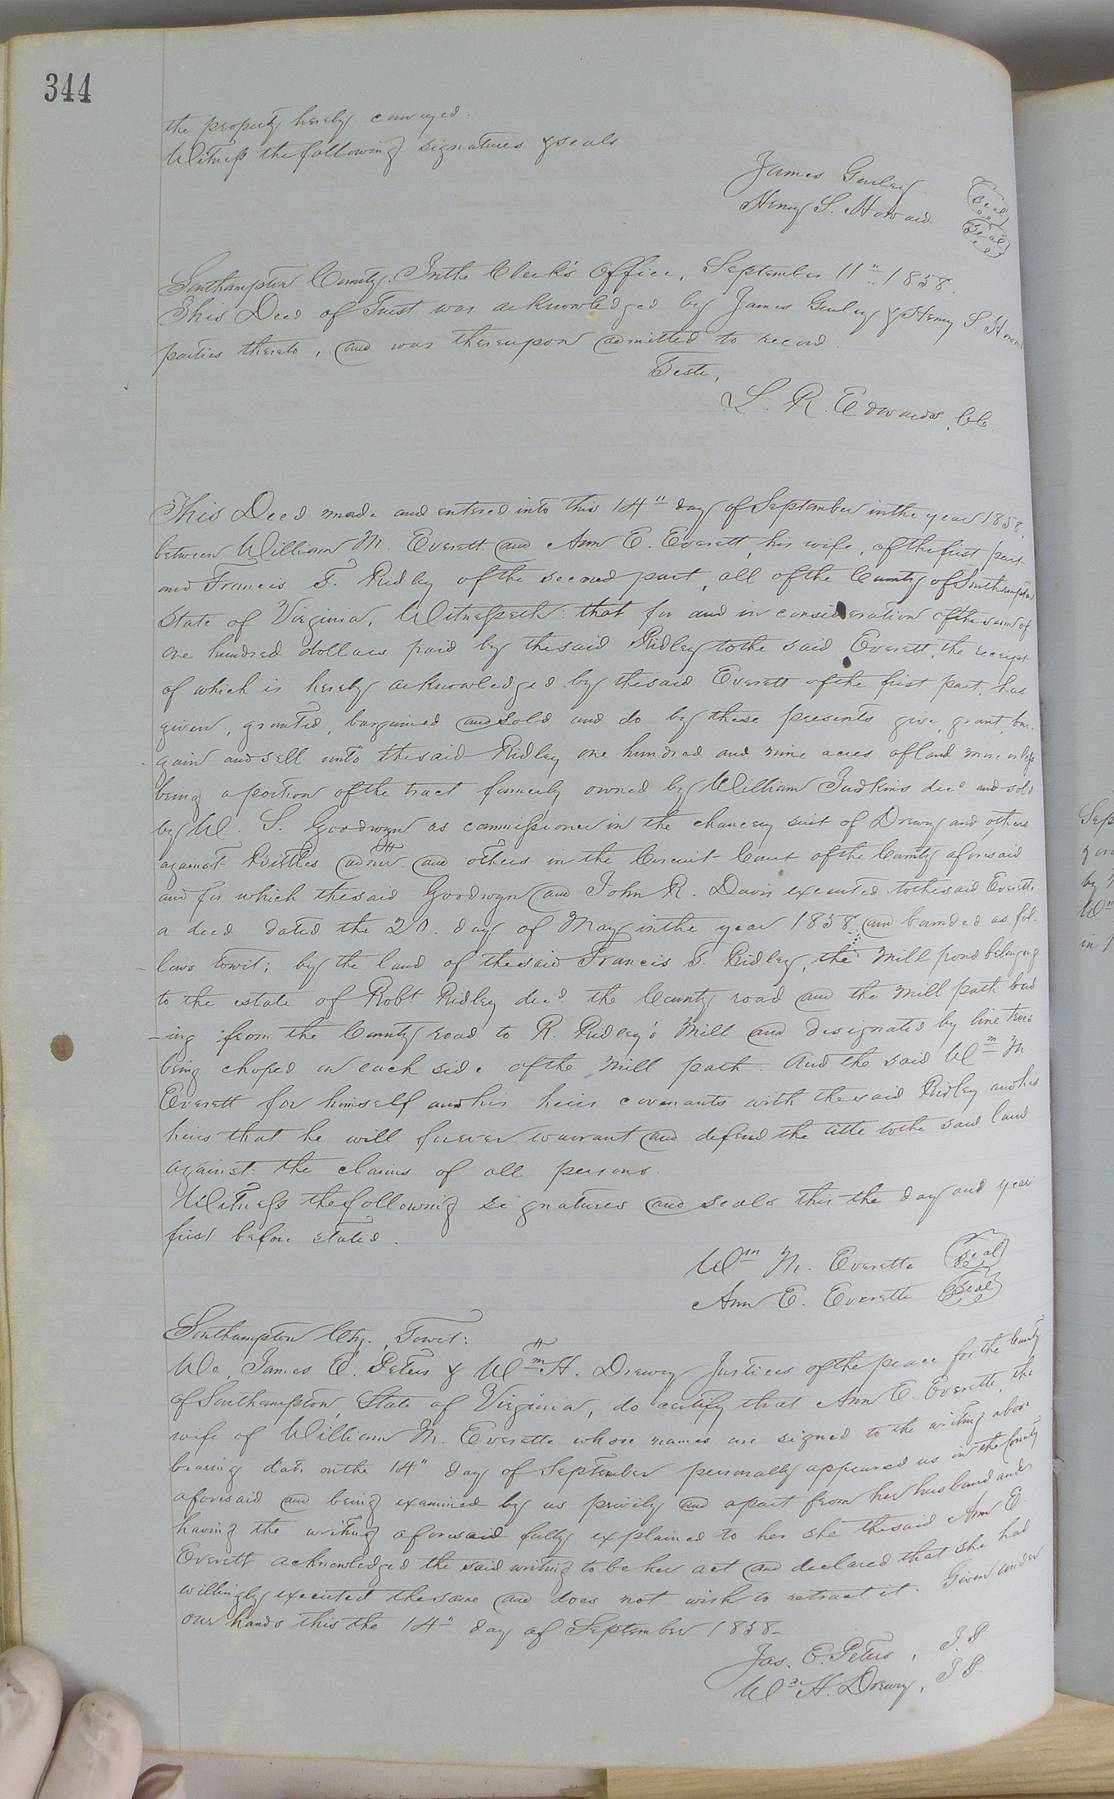 344
the property hereby conveyed.
Witness the following signatures & seals
James Gurley Seal
Henry S. Howard Seal
Southampton County. In the Clerk's Office, September 11", 1858.
This Deed of Trust was acknowledged by James Gurley & Henry S Howard
parties thereto, and was thereupon admitted to record
Teste,
L. R. Edwards, Clk.
This Deed made and entered into this 14" day of September in the year 1858,
between William M. Everett and Ann E. Everett, his wife, of the first part
and Francis T. Ridley of the second part, all of the County of Southampton
State of Virginia, Witnesseth: that for and in consideration of the sum of
one hundred dollars paid by the said Ridley to the said Everett, the receipt
of which is hereby acknowledged by the said Everett of the first part, has
given, granted, bargained and sold and do by these presents give, grant, bar-
gain and sell unto the said Ridley one hundred and nine acres of land more or less
being a portion of the tract formerly owned by William Judkins decd and sold
by W. S. Goodwyn as commissioner in the chancery suit of Drewry and others
against admr. and others in the Circuit Court of the County aforesaid
and for which the said Goodwyn and John R. Davis executed to the said Everett
a deed dated the 20. day of May in the year 1858, and bounded as fol-
lows towit; by the land of the said Francis T. Ridley, the mill pond belonging
to the estate of Robt Ridley decd. the County road and the mill path lead
ing from the County road to R. Ridley's Mill and designated by line trees
being choped on each side of the mill path. And the said Wm M
Everett for himself and his heirs covenants with the said Ridley and his
heirs that he will forever warrant and defend the title to the said land
against the claims of all persons.
Witness the following signatures and seals this the day and year
first before stated.
Wm M. Everette Seal
Ann E. Everette Seal
Southampton Cty., Towit:
We, James E. Peters & Wm H. Drewry Justices of the peace for the County
of Southampton, State of Virginia, do certify that Ann E. Everette, the
wife of William M. Everette whose names are signed to the writing above
bearing date on the 14" day of September personally appeared us in the County
aforesaid and being examined by us privily and apart from her husband and
having the writing aforesaid fully explained to her she the said Ann E.
Everett acknowledged the said writing to be her act and declared that she had
willingly executed the same and does not wish to retract it. Given under
our hands this the 14" day of September 1858-
Jas. E. Peters, J.P.
Wm H. Drewry, J.P.